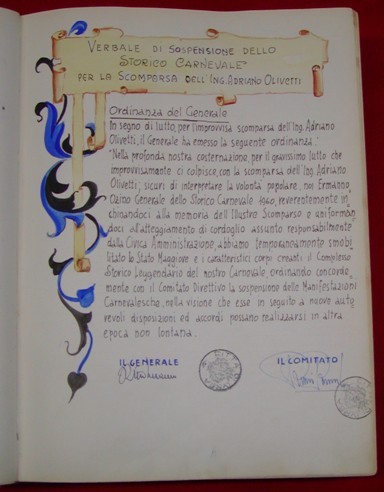 VERBALE DI SOSPENSIONE DELLO
STORICO CARNEVALE
PER LA SCOMPARSA DELL'ING. ADRIANO OLIVETTI
Ordinanza del Generale
In segno di lutto, per l'improvvisa scomparsa dell'Ing. Adriano
Olivetti, il Generale ha emesso la seguente ordinanza:
"Nella profonda nostra costernazione, per il gravissimo lutto che
improvvisamente ci colpisce, con la scomparsa dell'Ing. Adriano
Olivetti, sicuri di interpretare la volontà popolare, noi Ermanno
Ozino Generale dello Storico Carnevale 1960, reverentemente in
chinandoci alla memoria dell'Illustre Scomparso e uniforman
doci all'atteggiamento di cordoglio assunto responsabilmente
dalla Civica Amministrazione, abbiamo temporaneamente smobi
litato lo Stato Maggiore e i caratteristici corpi creanti il Complesso
Storico Leggendario del nostro Carnevale, ordinando concorde
mente con il Comitato Direttivo la sospensione delle Manifestazioni
Carnevalesche, nella visione che esse in seguito a nuove auto
revoli disposizioni ed accordi possano realizzarsi in altra
epoca non lontana.
IL GENERALE
IL COMITATO